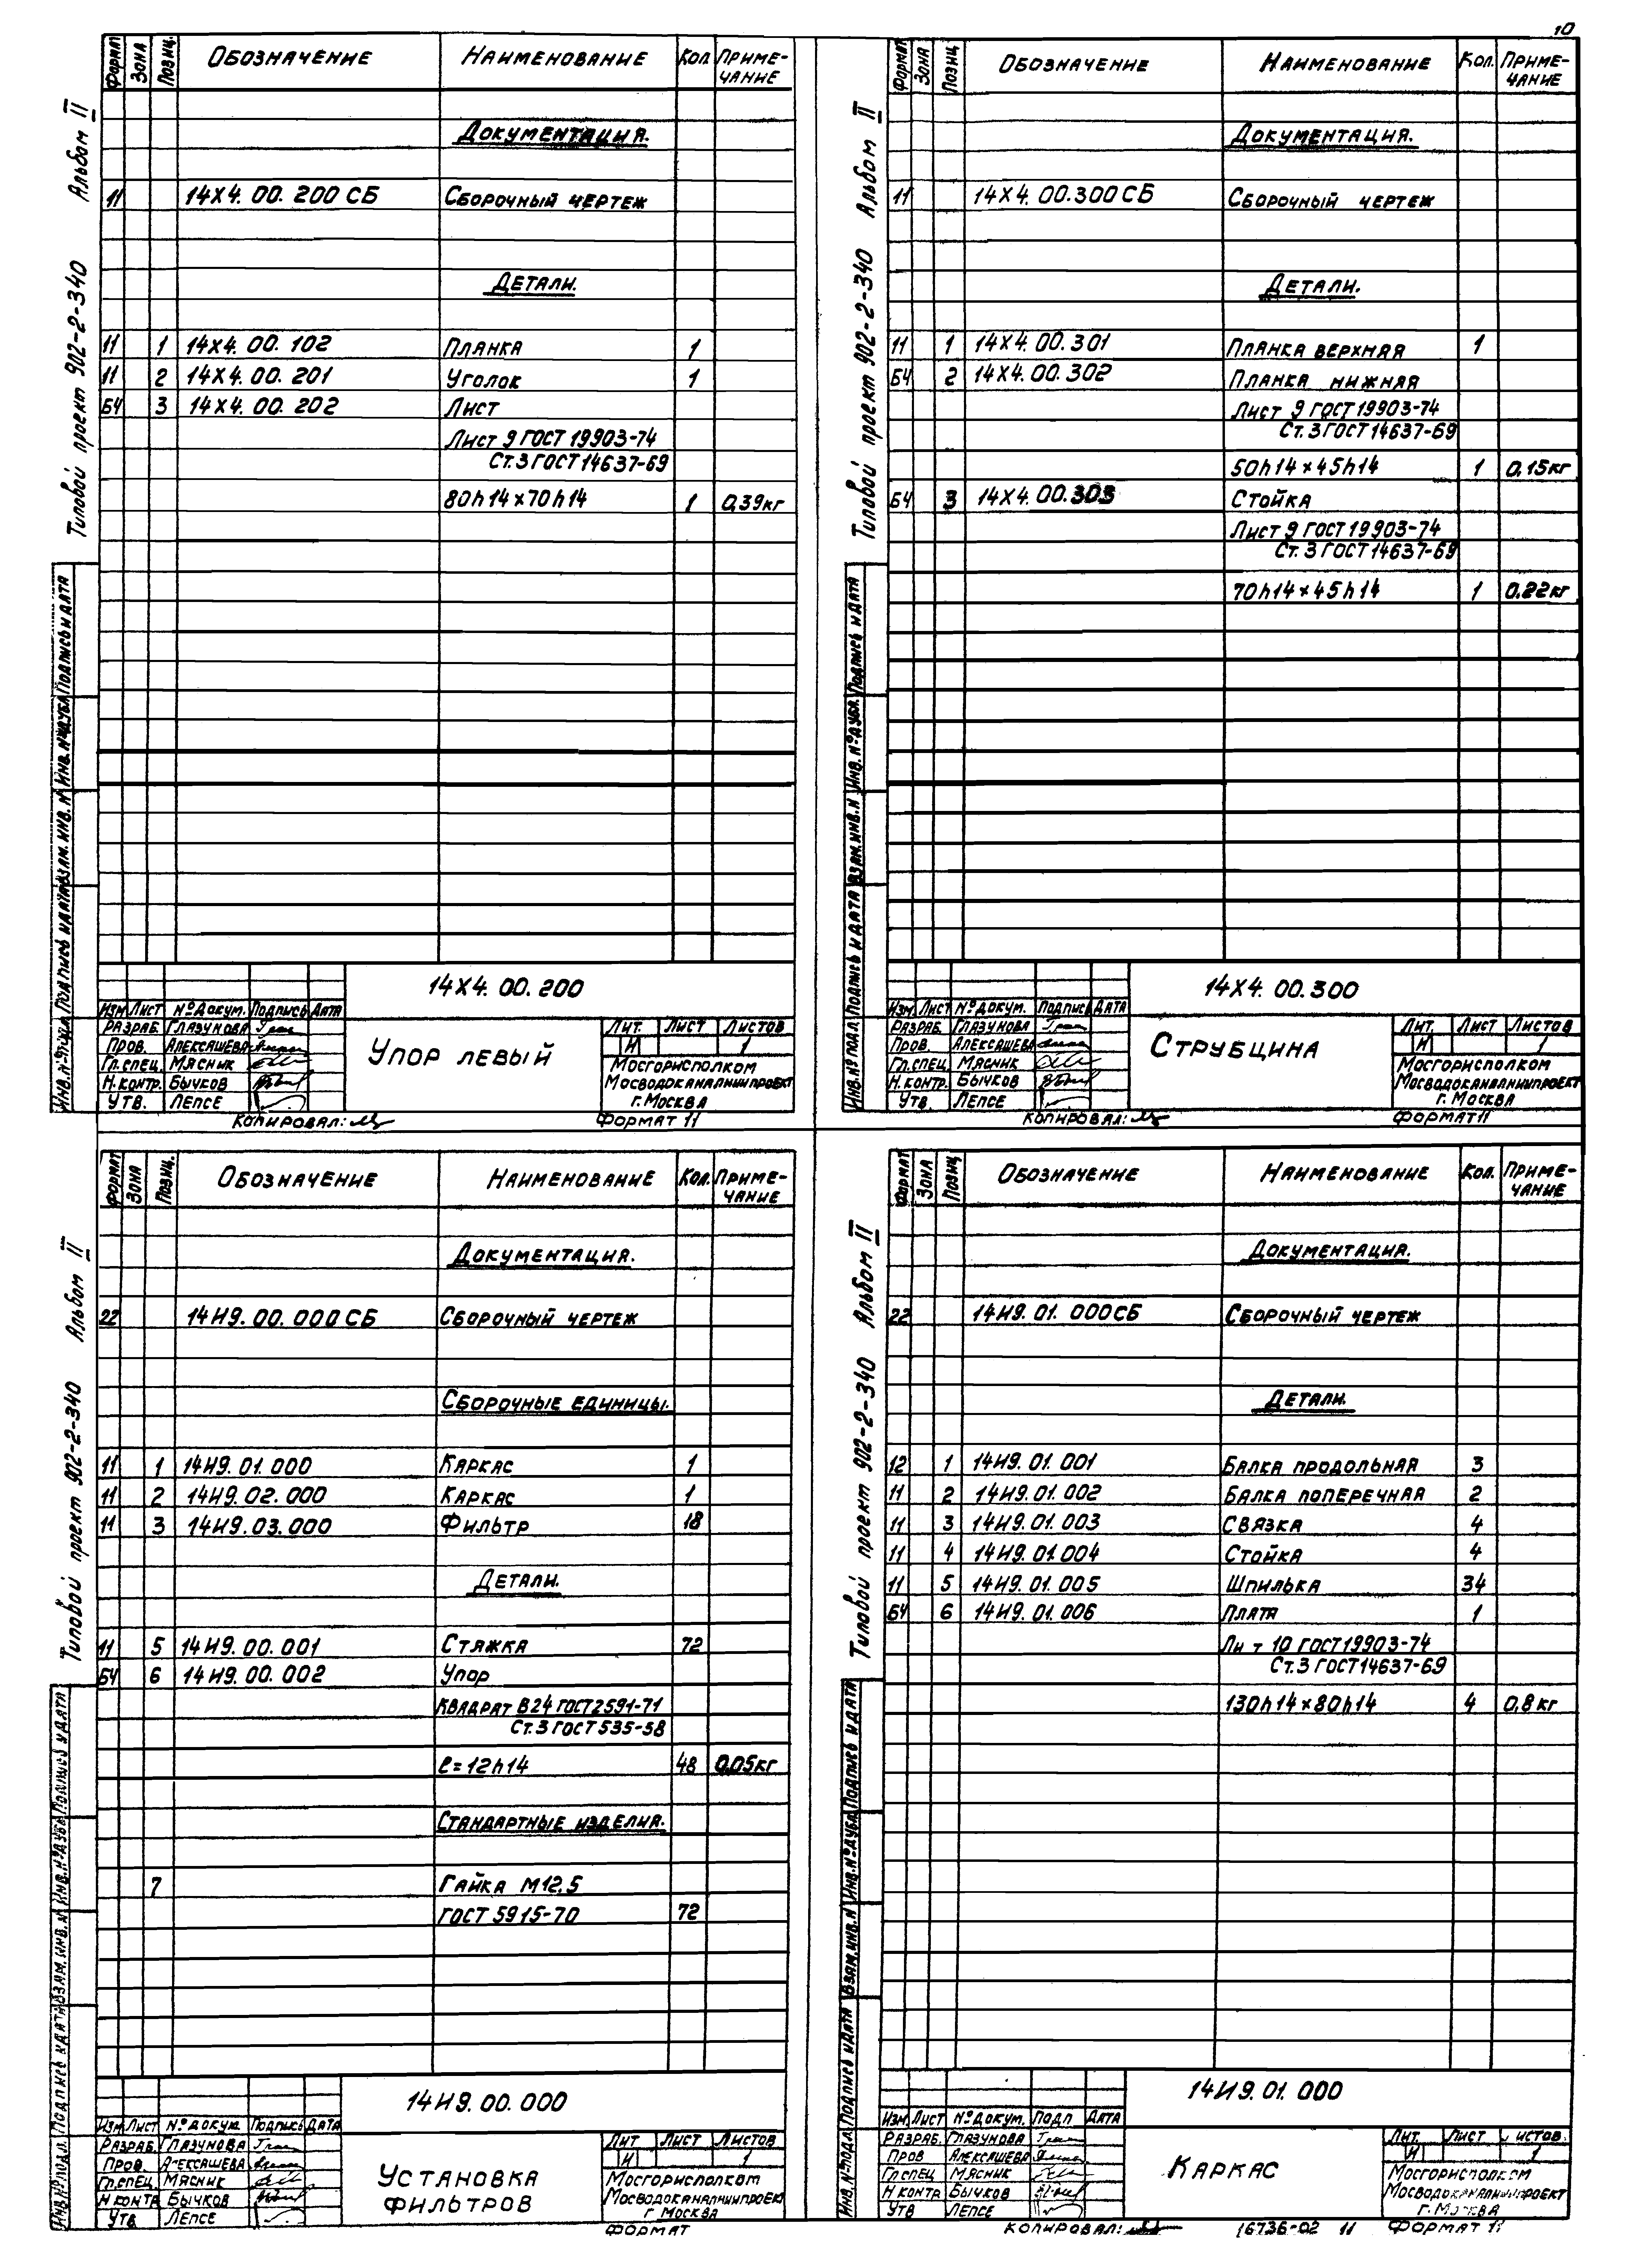 10
Типовой проект 902-2-340 Альбом II
Формат Зона Позиц. Обозначение Наименование Кол Приме-
чание
Документация.
11 14Х4. 00. 200 СБ Сборочный чертеж
Детали.
11 1 14Х4. 00. 102 Планка 1
11 2 14Х4. 00. 201 Уголок 1
БЧ 3 14Х4. 00. 202 Лист
Лист 9 ГОСТ 19903-74
Ст. 3 ГОСТ 14637-69
80h14×70h14 1 0,39кг
Инв. № подл. Подпись и дата Взам. инв. № Инв. № дубл. Подпись и дата
14Х4. 00. 200
Изм Лист № докум. Подпись Дата
Разраб. Глазунова
Пров. Алексашева
Гл. спец. Мясник
Н. контр. Бычков
Утв. Лепсе
Упор левый
Лит. Лист Листов
И 1
Мосгорисполком
Мосводоканалниипроект
г. Москва
Копировал: Формат 11
Типовой проект 902-2-340 Альбом II
Формат Зона Позиц Обозначение Наименование Кол. Приме-
чание
Документация.
11 14Х4. 00. 300 СБ Сборочный чертеж
Детали.
11 1 14Х4. 00. 301 Планка верхняя 1
БЧ 2 14Х4. 00. 302 Планка нижняя
Лист 9 ГОСТ 19903-74
Ст. 3 ГОСТ 14637-69
50h14×45h14 1 0,15кг
БЧ 3 14Х4. 00.303 Стойка
Лист 9 ГОСТ 19903-74
Ст. 3 ГОСТ 14637-69
70h14×45h14 1 0,22кг
Инв. № подл. Подпись и дата Взам. инв. № Инв. № дубл. Подпись и дата
14Х4. 00. 300
Изм Лист № докум. Подпись Дата
Разраб. Глазунова
Пров. Алексашева
Гл. спец. Мясник
Н. контр. Бычков
Утв. Лепсе
Струбцина
Лит. Лист Листов
И 1
Мосгорисполком
Мосводоканалниипроект
г. Москва
Копировал: Формат 11
Типовой проект 902-2-340 Альбом II
Формат Зона Позиц. Обозначение Наименование Кол. Приме-
чание
Документация.
22 14И9. 00. 000 СБ Сборочный чертеж
Сборочные единицы.
11 1 14И9. 01. 000 Каркас 1
11 2 14И9. 02. 000 Каркас 1
11 3 14И9. 03. 000 Фильтр 18
Детали.
11 5 14И9. 00. 001 Стяжка 72
БЧ 6 14И9. 00. 002 Упор
Квадрат В24 ГОСТ 2591-71
Ст. 3 ГОСТ 535-58
ℓ=12h14 48 0,05кг
Стандартные изделия.
7 Гайка М12.5
ГОСТ 5915-70 72
Инв. № подл. Подпись и дата Взам. инв. № Инв. № дубл. Подпись и дата
14И9. 00. 000
Изм Лист № докум Подпись Дата
Разраб. Глазунова
Пров. Алексашева
Гл. спец. Мясник
Н контр Бычков
Утв Лепсе
Установка
фильтров
Лит Лист Листов
И 1
Мосгорисполком
Мосводоканалниипроект
г. Москва
Формат
Типовой проект 902-2-340 Альбом II
Формат Зона Позиц Обозначение Наименование Кол. Приме-
чание
Документация.
22 14И9. 01. 000СБ Сборочный чертеж
Детали.
12 1 14И9. 01. 001 Балка продольная 3
11 2 14И9. 01. 002 Балка поперечная 2
11 3 14И9. 01. 003 Связка 4
11 4 14И9. 01. 004 Стойка 4
11 5 14И9. 01. 005 Шпилька 34
БЧ 6 14И9. 01. 006 Плата 1
Ли т 10 ГОСТ 19903-74
Ст. 3 ГОСТ 14637-69
130h14×80h14 4 0,8 кг
Инв. № подл. Подпись и дата Взам. инв. № Инв. № дубл. Подпись и дата
14И9. 01. 000
Изм Лист № докум. Подп Дата
Разраб. Глазунова
Пров Алексашева
Гл спец Мясник
Н контр Бычков
Утв Лепсе
Каркас
Лит. Лист истов.
И 1
Мосгорисполком
Мосводоканалниипроект
г. Москва
Копировал: 16736-02 11 Формат 11